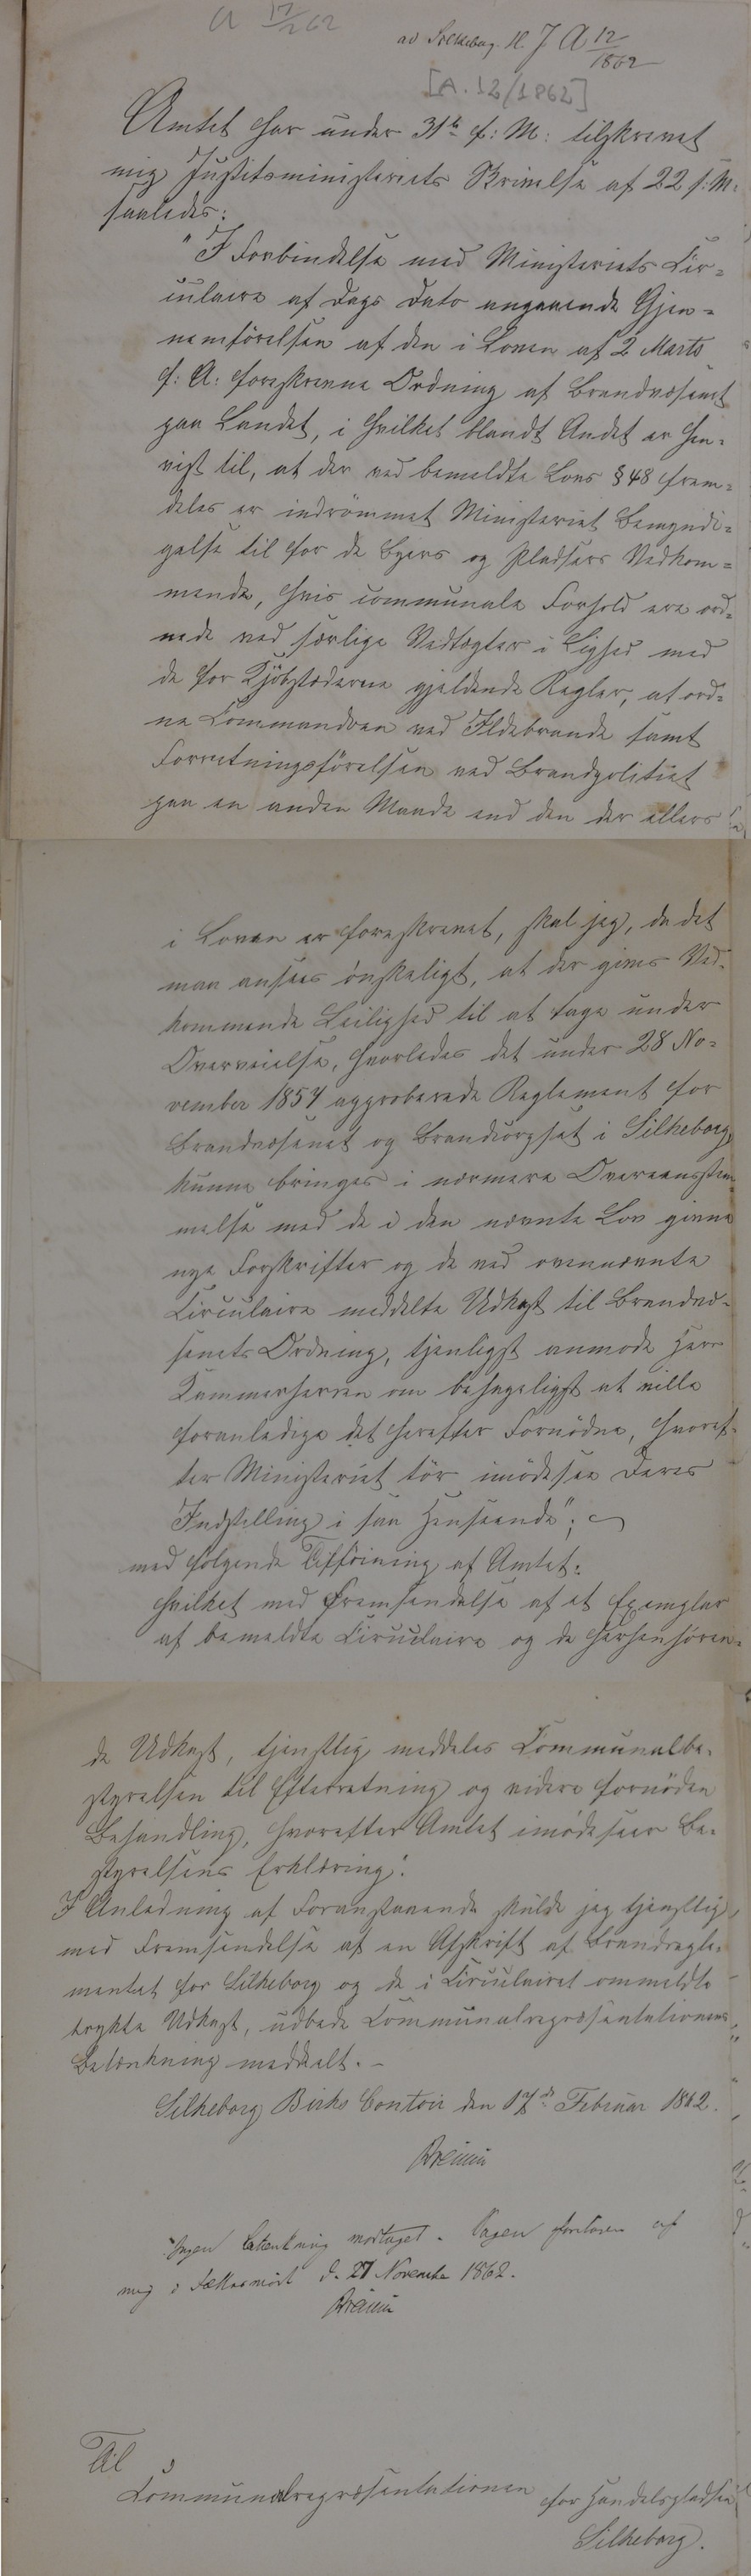 A 17/2 62
ad Silkebag. H. J A 12/1862
[A. 12/1862]
Amtet har under 31te f: M: tilskrevet
mig Justitsministeriets Skrivelse af 22 s: M:
saaledes:
"I Forbindelse med Ministeriets Cir-
culaire af Dags Dato angaaende Gjen-
nemførelsen af den i Loven af 2 Marts
f: A: foreskrevne Ordning af Brandvæsenet
paa Landet, i hvilket blandt Andet er hen-
vist til, at der ved bemeldte Lovs § 48 frem-
deles er indrømmet Ministeriet Bemyndi-
gelse til for de Byers og Pladsers Vedkom-
mende, hvis communale Forhold ere ord-
nede ved særlige Vedtægter i Lighed med
de for Kjøbstæderne gjeldende Regler, at ord-
ne Commandoen ved Ildebrande samt
Forretningsførelsen ved Brandpolitiet
paa en anden Maade end den der ellers
i Loven er foreskrevet, skal jeg, da det
maa ansees ønskeligt, at der gives Ved-
kommende Leilighed til at tage under
Overveielse, hvorledes det under 28 No-
vember 1857 approberede Reglement for
Brandvæsenet og Brandcorpset i Silkeborg
kunne bringes i nærmere Overeensstem-
melse med de i den nævnte Lov givne
nye Forskrifter og de ved ovennævnte
Circulaire meddelte Udkast til Brandvæ-
senets Ordning, tjenligst anmode Herr
Kammerherren om behageligst at ville
foranledige det herefter Fornødne, hvoref-
ter Ministeriet tør imødesee Deres
Indstilling i saa Henseende";
med følgende Tilføining af Amtet:
hvilket med Fremsendelse af et Exemplar
af bemeldte Circulaire og de herhenhøren-
de Udkast, tjenstlig meddeles Communalbe-
styrelsen til Efterretning og videre fornøden
Behandling, hvorefter Amtet imødeseer Be-
styrelsens Erklæring".
I Anledning af Foranstaaende skulde jeg tjenstlig,
med Fremsendelse af en Afskrift af Brandregle-
mentet for Silkeborg og de i Circulairet ommeldte
trykte Udkast, udbede Communalrepræsentationens
Betænkning meddeelt. -
Silkeborg Birks Contoir den 17de Februar 1862.
Ingen Betænkning modtaget. Sagen foretages af
mig i d. 27 November 1862.
Til
Communalrepræsentationen for Handelspladsen
Silkeborg.